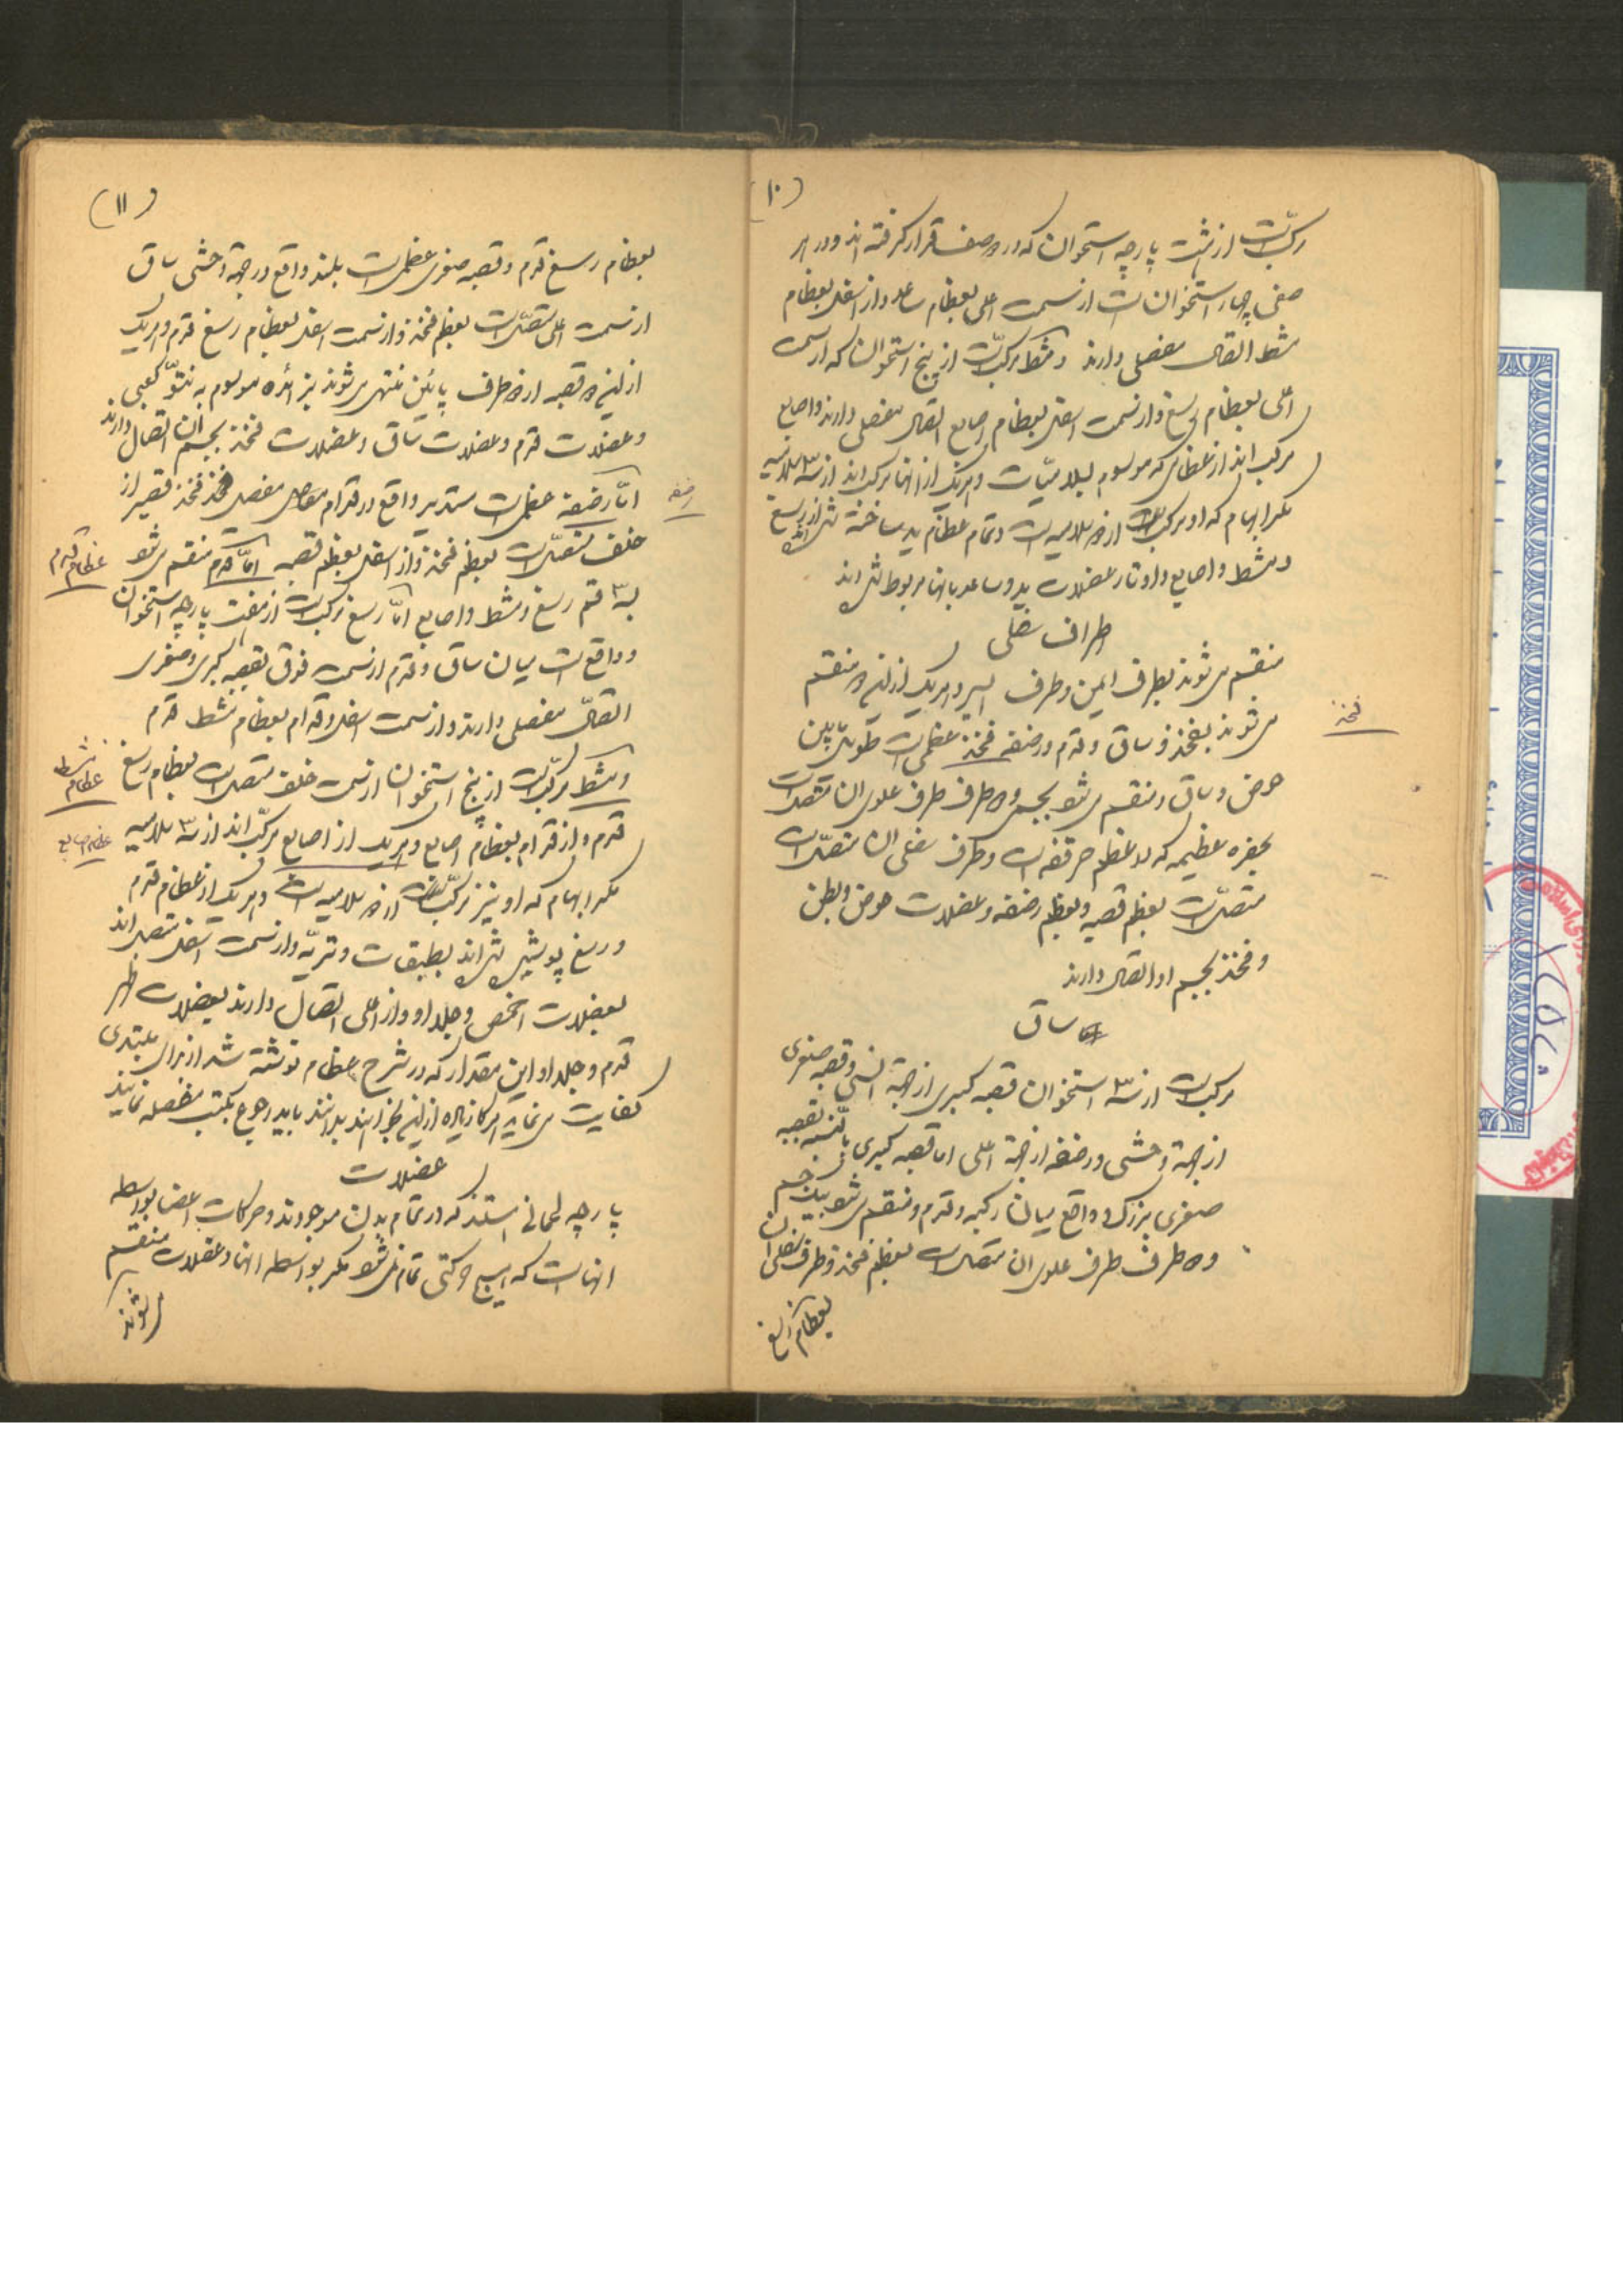 (۱۰)
مرکب است از هشت پارچه استخوان که در دو صف قرار گرفته اند و در هر
صفی چهار استخوان است از سمت اعلی بعظام ساعد و از اسفل بعظام
مشط اتصال مفصلی دارند و مشط مرکب است از پنج استخوان که از سمت
اعلی بعظام رسغ و از سمت اسفل بعظام اصابع اتصال مفصلی دارند و اصابع
مرکب اند از عظامی که موسوم بسلامیات و هر یک از انها مرکب اند از سه سلامیه
مگر ابهام که او مرکب است از دو سلامیه است و تمام عظام ید ساخته شده اند از رسغ
و مشط و اصابع و اوتار عضلات ید و ساعد بانها مربوط شده اند
اطراف سفلی
منقسم می شوند بطرف ایمن و طرف ایسر و هر یک از این دو منقسم
می شوند بفخذ و ساق و قدم و رضفه فخذ عظمی است طویل بین
فخذ
حوض و ساق و منقسم می شود بجسم و دو طرف طرف علوی ان متصل است
بحفره عظیمه که در عظم حرقفه است و طرف سفلی ان متصل است
متصل است بعظم قصبه و بعظم رضفه و عضلات حوض و بطن
و فخذ بجسم او اتصال دارند
ساق
مرکب است از سه استخوان قصبه کبری از جهة انسی و قصبه صغری
از جهة وحشی و رضفه از جهة اعلی اما قصبه کبری بالنسبه بقصبه
صغری بزرگ و واقع میان رکبه و قدم و منقسم می شود بیک جسم
و دو طرف طرف علوی ان متصل است بعظم فخذ و طرف سفلی ان
بعظام رسغ
(۱۱)
بعظام رسغ قدم و قصبه صغری عظمی است بلند واقع در جهة وحشی ساق
از سمت اعلی متصل است بعظم فخذ و از سمت اسفل بعظام رسغ قدم و هر یک
از این دو قصبه از دو طرف پائین منتهی می شوند بزائده موسوم به نتوّ کعبی
و عضلات قدم و عضلات ساق و عضلات فخذ بجسم ان اتصال دارند
اما رضفه عظمی است مستدیر واقع در قدام مفصل فخذ قصیر از
رضفه
خلف متصل است بعظم فخذ و از اسفل بعظم قصبه اما قدم منقسم می شود
عظام قدم
به ۳ قسم رسغ و مشط و اصابع اما رسغ مرکب است از هفت پارچه استخوان
و واقع است میان ساق و قدم از سمت فوق بقصبه کبری و صغری
اتصال مفصلی دارند و از سمت اسفل و قدام بعظام مشط قدم
و مشط مرکب است از پنج استخوان از سمت خلف متصل است بعظام رسغ
عظام مشط
قدم و از قدام بعظام اصابع و هر یک از اصابع مرکب اند از سه سلامیه
عظام اصابع
مگر ابهام که او نیز مرکب است از دو سلامیه است و هر یک از عظام قدم
و رسغ پوشیده شده اند بطبقات وتریه و از سمت اسفل متصل اند
بعضلات اخمص و جلد او و از اعلی اتصال دارند بعضلات ظهر
قدم و جلد او این مقدار که در شرح عظام نوشته شد از برای مبتدی
کفایت می نماید هرگاه زیاده از این بخواهند بدانند باید رجوع بکتب مفصله نمایند
عضلات
پارچه لحمانی هستند که در تمام بدن موجودند و حرکات اعضا بواسطه
انها است که هیچ حرکتی تمام نمی شود مگر بواسطه انها و عضلات منقسم
می شوند